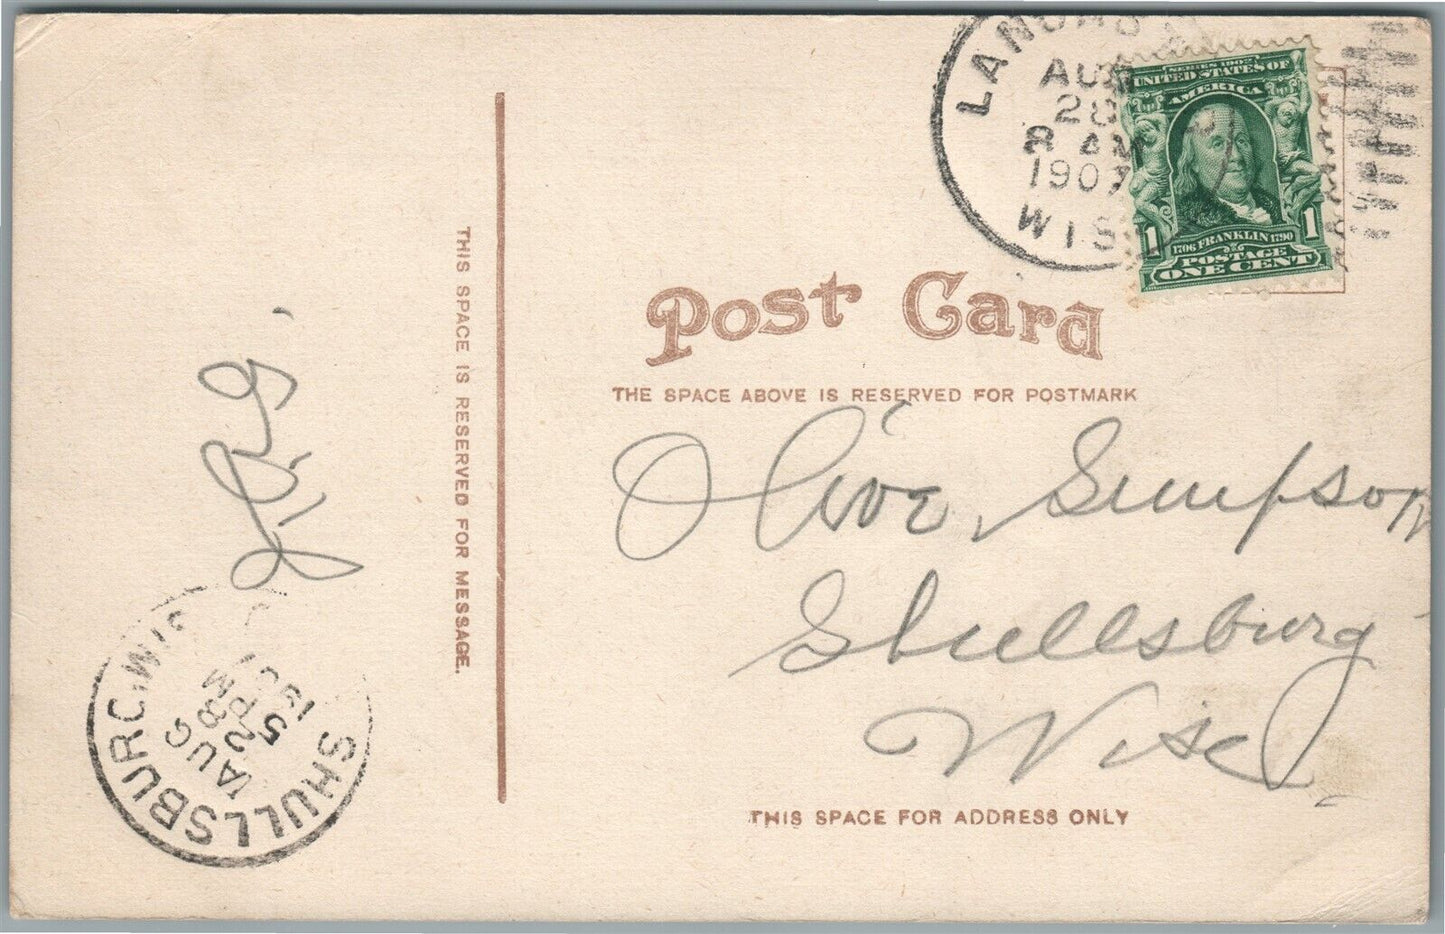 AUG
28
8 AM
1907
WIS
SERIES 1902
UNITED STATES OF
AMERICA
1 1
1706 FRANKLIN 1790
POSTAGE
ONE CENT
Post Card
THE SPACE ABOVE IS RESERVED FOR POSTMARK
THIS SPACE IS RESERVED FOR MESSAGE.
Olive Simpson
Shullsburg
Wisc
THIS SPACE FOR ADDRESS ONLY
SHULLSBURG, WIS
AUG
28
5 PM